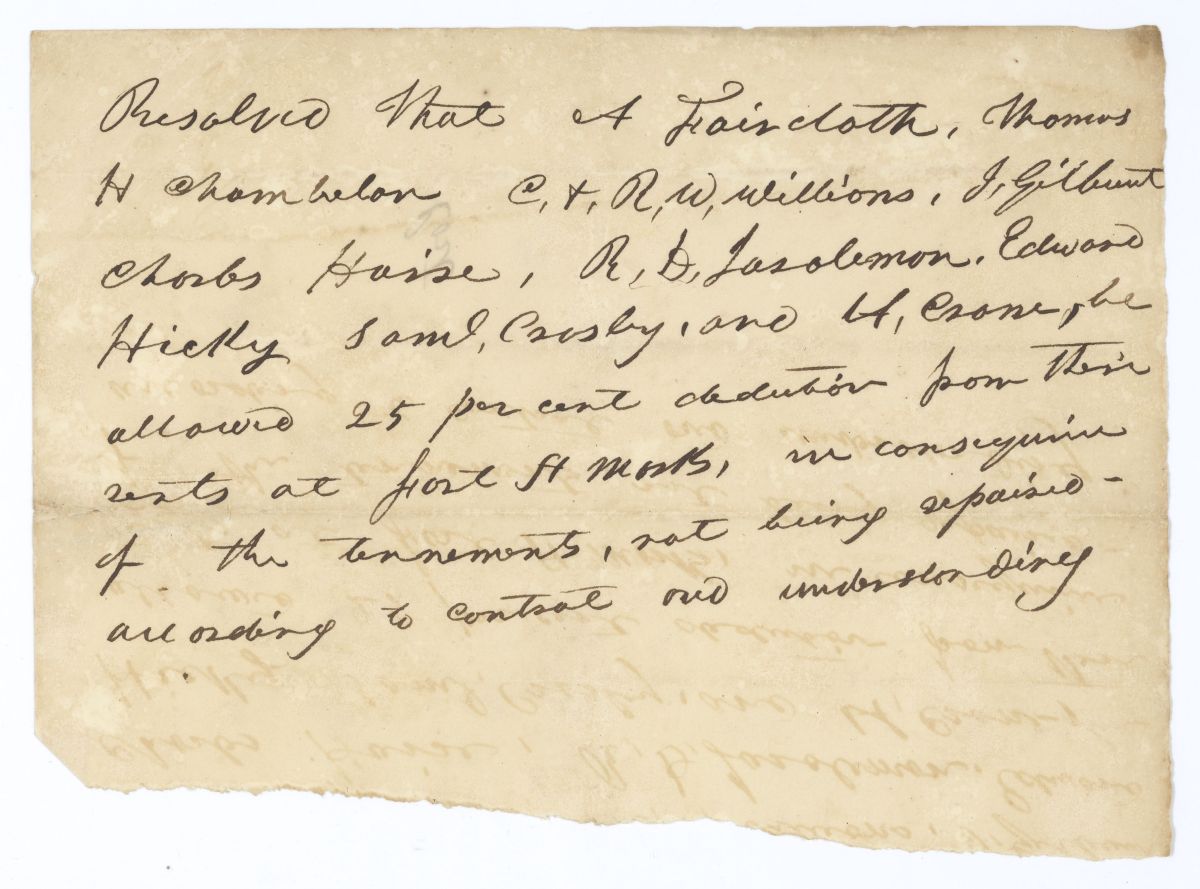 Resolved That A Faircloth, Thomas
H Chambelan C, &, R, W, Willions, J, Gilbunt
Charls Hairse, R, D, Jasolemon, Edward
Hicky Saml, Crosby, and H, Crane, be
allowed 25 per cent dedution from their
rents at Fort St Marks, in consequince
of the tennements, not being repaired -
according to contrat and understanding